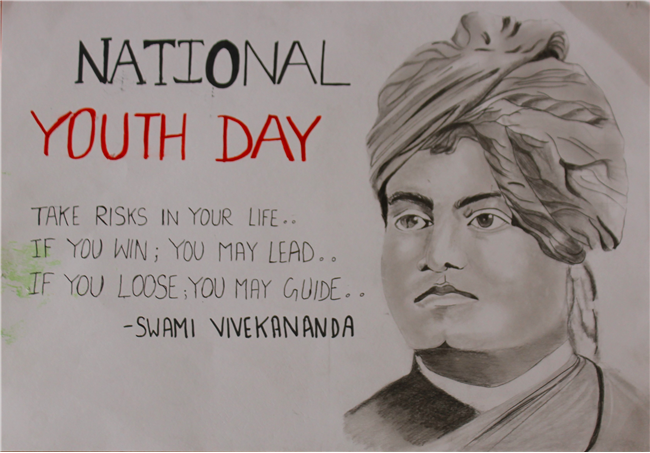 NATIONAL
YOUTH DAY
TAKE RISKS IN YOUR LIFE..
IF YOU WIN; YOU MAY LEAD..
IF YOU LOOSE;YOU MAY GUIDE..
-SWAMI VIVEKANANDA